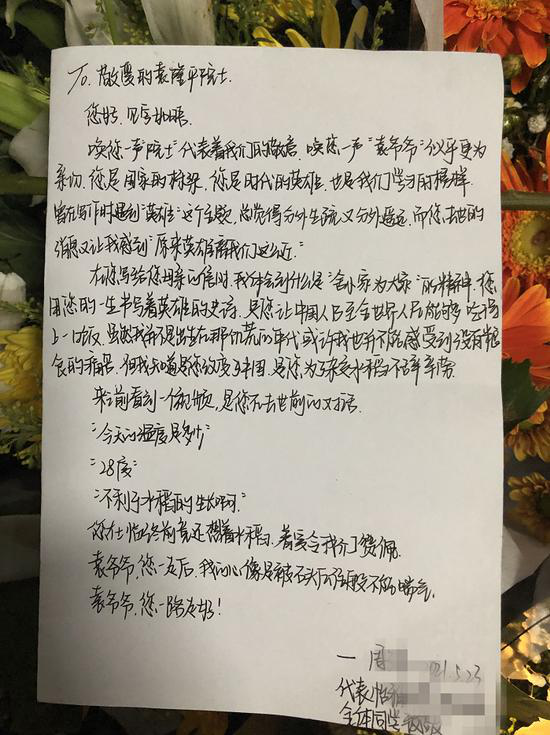 To. 敬爱的袁隆平院士
您好,见字如晤
唤您一声"院士"代表着我们的敬意,唤您一声"袁爷爷"似乎更为
亲切,您是国家的栋梁,您是时代的英雄,也是我们学习的榜样
曾在写作时遇到"英雄"这个主题,总觉得分外生疏又分外遥远,而您去世的
消息又让我感到"原来英雄离我们这么近。"
在您写给您母亲的信时,我体会到什么是"舍小家为大家"的精神,您
用您的一生书写着英雄的史诗,是您让中国人民乃至全世界人民能够吃得
上一口饭,虽然我并不是出生在那饥荒的年代,或许我也并不能感受到没有粮
食的痛苦,但我知道是您 是您为了杂交水稻不辞辛劳
来之前看到一个视频,是您在去世前的对话
"今天的温度是多少"
"28度"
"不利于水稻的生长啊."
您在临终前竟还想着水稻,着实令我们赞佩.
袁爷爷,您一走后,我们心像是被石头压住般不能喘气.
袁爷爷,您一路走好!
一 周
21.5.23
代表怡雅
全体同学敬